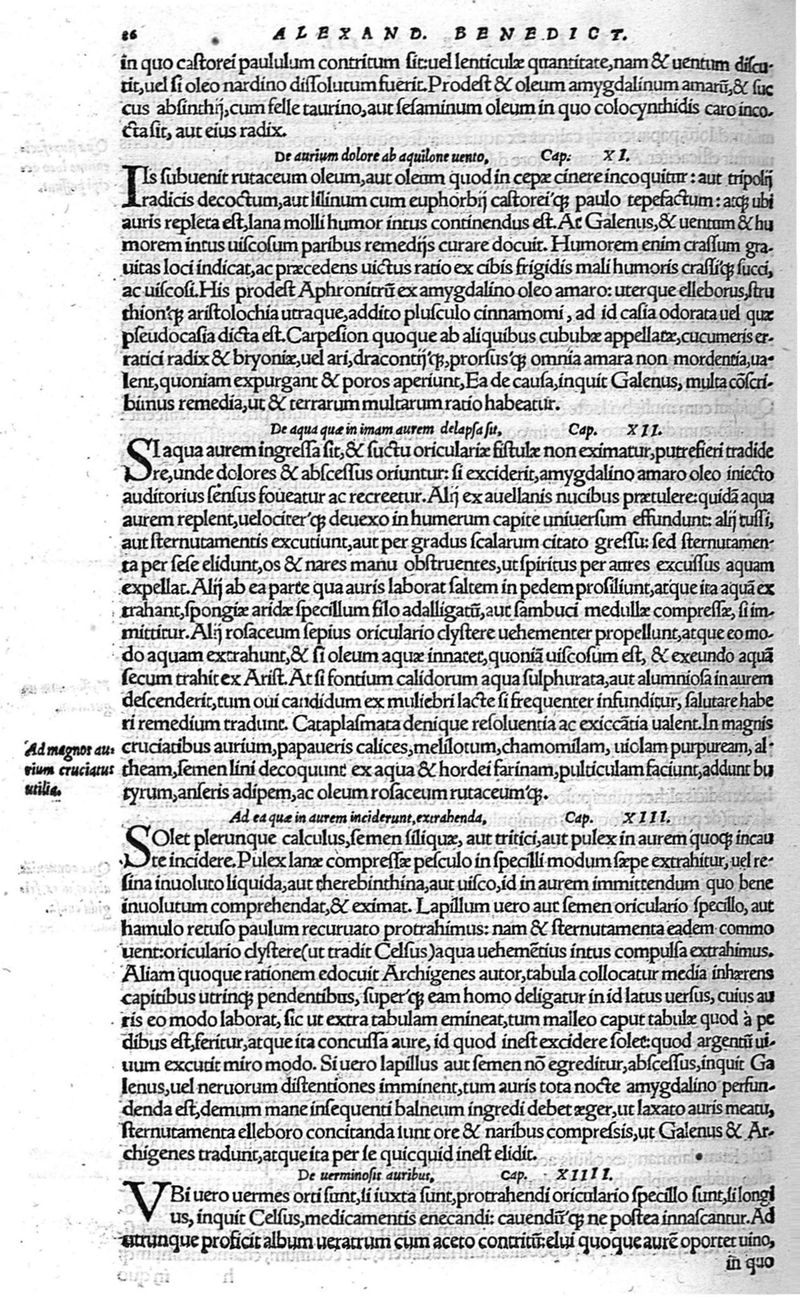 86 ALEXAND. BENEDICT.
in quo castorei paululum contritum sit:uel lenticulæ quantitate, nam & uentum discu-
tit,uel si oleo nardino dissolutum fuerit.Prodest & oleum amygdalinum amarũ,& suc
cus absinthij,cum felle taurino,aut sesaminum oleum in quo colocynthidis caro inco-
cta sit, aut eius radix.
De aurium dolore ab aquilone uento, Cap: XI.
IIs subuenit rutaceum oleum,aut oleum quod in cepæ cinere incoquitur: aut tripolij
radicis decoctum,aut lilinum cum euphorbij castorei'q; paulo tepefactum: atq; ubi
auris repleta est,lana molli humor intus continendus est.At Galenus,& uentum & hu
morem intus uiscosum paribus remedijs curare docuit. Humorem enim crassum gra-
uitas loci indicat,ac præcedens uictus ratio ex cibis frigidis mali humoris crassi'q; succi,
ac uiscosi.His prodest Aphronitrũ ex amygdalino oleo amaro: uterque elleborus,stru
thion'q; aristolochia utraque,addito plusculo cinnamomi, ad id casia odorata uel quæ
pseudocasia dicta est.Carpesion quoque ab aliquibus cububæ appellatæ,cucumeris er-
ratici radix & bryoniæ,uel ari,dracontij'q;,prorsus'q; omnia amara non mordentia,ua-
lent,quoniam expurgant & poros aperiunt,Ea de causa,inquit Galenus, multa cõscri-
bimus remedia,ut & terrarum multarum ratio habeatur.
De aqua quæ in imam aurem delapsa sit, Cap. XII.
SI aqua aurem ingressa sit,& suctu oriculariæ fistulæ non eximatur,putrefieri tradide
re,unde dolores & abscessus oriuntur: si exciderit,amygdalino amaro oleo iniecto
auditorius sensus foueatur ac recreetur.Alij ex auellanis nucibus prætulere:quidã aqua
aurem replent,uelociter'q; deuexo in humerum capite uniuersum effundunt: alij tussi,
aut sternutamentis excutiunt,aut per gradus scalarum citato gressu: sed sternutamen-
ta per sese elidunt,os & nares manu obstruentes,ut spiritus per aures excussus aquam
expellat.Alij ab ea parte qua auris laborat saltem in pedem prosiliunt,atque ita aquã ex
trahant,spongiæ aridæ specillum filo adalligatũ,aut sambuci medullæ compressæ, si im-
mittitur.Alij rosaceum sepius oriculario clystere uehementer propellunt,atque eo mo-
do aquam extrahunt,& si oleum aquæ innatet,quoniã uiscosum est, & exeundo aquã
secum trahit ex Arist.At si fontium calidorum aqua sulphurata,aut aluminosa in aurem
descenderit,tum oui candidum ex muliebri lacte si frequenter infunditur, salutare habe
ri remedium tradunt. Cataplasmata denique resoluentia ac exiccãtia ualent.In magnis
Ad magnos au-
rium cruciatus
utilia.
cruciatibus aurium,papaueris calices,melilotum,chamomilam, uiolam purpuream, al-
theam,semen lini decoquunt ex aqua & hordei farinam,pulticulam faciunt,addunt bu
tyrum,anseris adipem,ac oleum rosaceum rutaceum'q;.
Ad ea quæ in aurem inciderunt,extrahenda, Cap. XIII.
SOlet plerunque calculus,semen siliquæ, aut tritici,aut pulex in aurem quoq; incau
te incidere.Pulex lanæ compressæ pesculo in specilli modum sæpe extrahitur,uel re-
sina inuoluto liquida,aut therebinthina,aut uisco,id in aurem immittendum quo bene
inuolutum comprehendat,& eximat. Lapillum uero aut semen oriculario specillo, aut
hamulo retuso paulum recuruato protrahimus: nam & sternutamenta eadem commo
uent:oriculario clystere(ut tradit Celsus)aqua uehemẽtius intus compulsa extrahimus.
Aliam quoque rationem edocuit Archigenes autor,tabula collocatur media inhærens
capitibus utrinq; pendentibus, super'q; eam homo deligatur in id latus uersus, cuius au
ris eo modo laborat, sic ut extra tabulam emineat,tum malleo caput tabulæ quod à pe
dibus est,feritur,atque ita concussa aure, id quod inest excidere solet:quod argentũ ui-
uum excutit miro modo. Si uero lapillus aut semen nõ egreditur,abscessus,inquit Ga
lenus,uel neruorum distentiones imminent,tum auris tota nocte amygdalino perfun-
denda est,demum mane insequenti balneum ingredi debet æger,ut laxato auris meatu,
sternutamenta elleboro concitanda sunt ore & naribus compressis,ut Galenus & Ar-
chigenes tradunt,atque ita per se quicquid inest elidit.
De uerminosis auribus, Cap. XIIII.
VBi uero uermes orti sunt,si iuxta sunt,protrahendi oriculario specillo sunt,si longi
us, inquit Celsus,medicamentis enecandi: cauendũ'q; ne postea innascantur.Ad
utrunque proficit album ueratrum cum aceto contritũ:elui quoque aurẽ oportet uino,
in quo